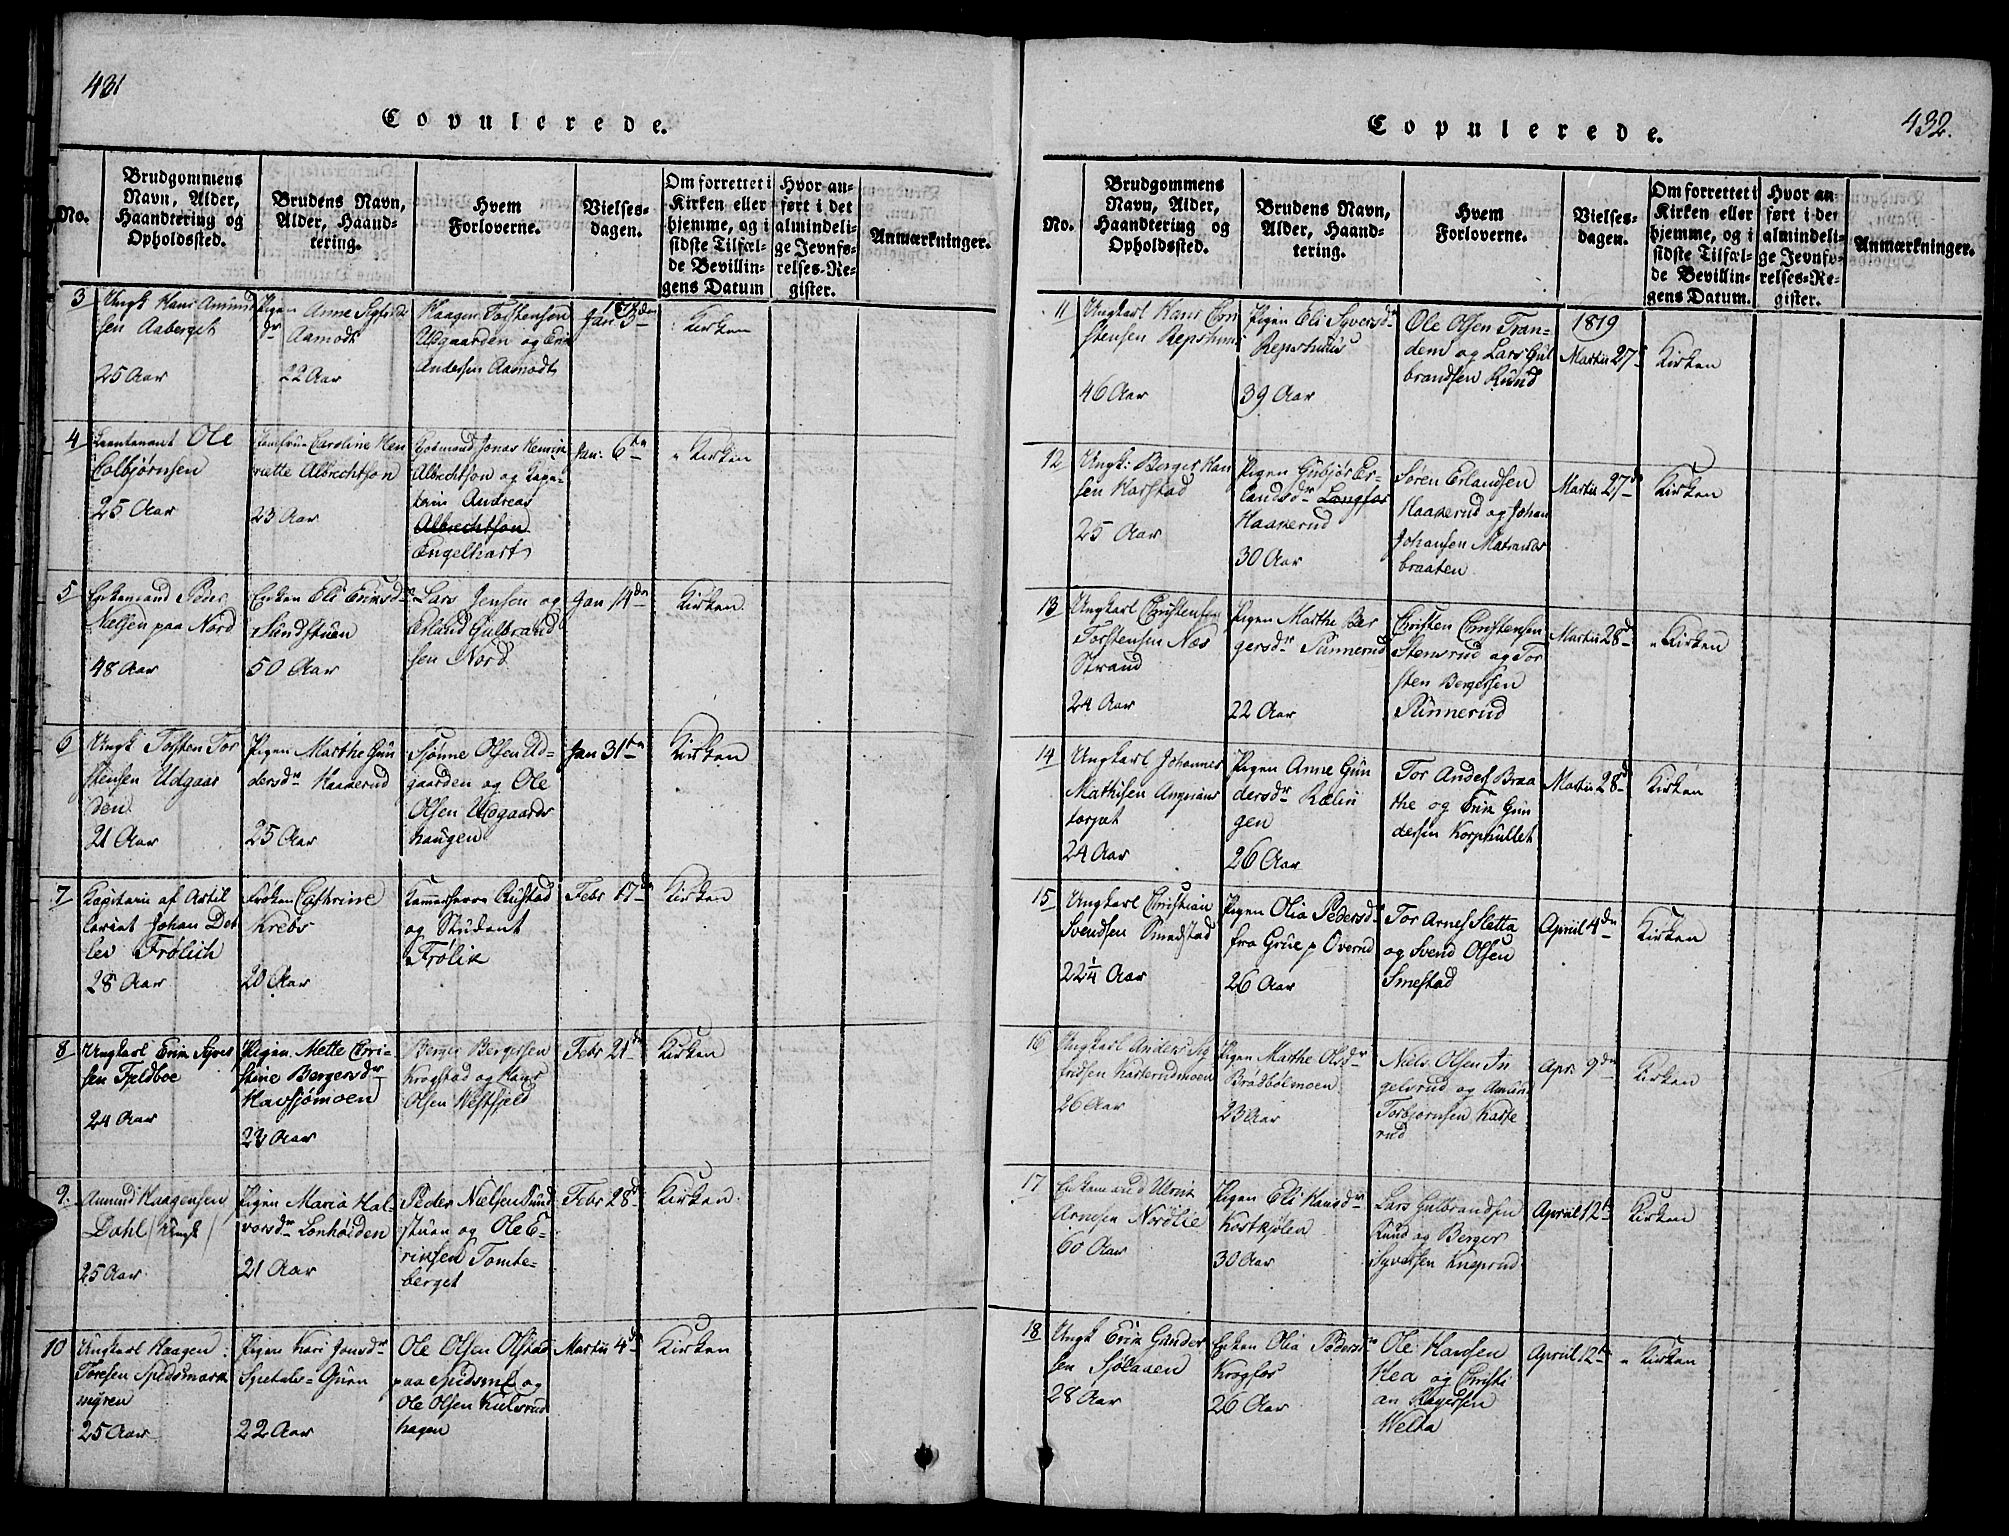 431
Copulerede.
No.
Brudgommens
Navn, Alder,
Haandtering og
Opholdssted.
Brudens Navn,
Alder, Haand-
tering.
Hvem
Forloverne.
Vielses-
dagen.
Om forrettet i
Kirken eller
hjemme, og i
sidste Tilfæl-
de Bevillin-
gens Datum
Hvor an-
ført i det
almindeli-
ge Jevnfø-
relses-Re-
gister.
Anmærkninger.
3
Ungk Hans Amund
sen Aaberget
25 Aar
Pigen Anne
dr Aamodt
22 Aar
Haagen Torstensen
Udgaarden og Erik
Andersen Aamodt
Jan. 3
Kirken
4
Leutenant Ole
Colbjørnsen
25 Aar
Jomfrue Caroline Hen
riette Albrechtson
23 Aar
Jonas Henrik
Albrechtson og Capi-
tain Andreas
Albrechtson
Engelhart
Jan. 6te
Kirken
5
Enkemand Peder
Nielsen paa Nord
48 Aar
Enken Eli Eriksdr
Sundstuen
50 Aar
Lars Jensen og
Erland Gulbrand
sen Nord
Jan 14de
Kirken
6
Ungk Torsten Tor
stensen Udgaar
den
21 Aar
Pigen Marthe Gun
dersdr Haakerud
25 Aar
Sjønne Olsen Ud-
gaarden og Ole
Olsen Udgaards
haugen
Jan 31te
Kirken
7
Capitain af Artil
leriet Johan Det
lev Frølich
28 Aar
Frøken Cathrine
Krebs
20 Aar
Kammerherre Anstad
og Student
Frølik
Febr 17de
Kirken
8
Ungkarl Erik Syver
sen Fjeldboe
24 Aar
Pigen Mette Chri-
stine Bergersdr
Havsjømoen
23 Aar
Berger Bergersen
Krogstad og Hans
Olsen Westfjeld
Febr 21de
Kirken
9.
Amund Haagensen
Dahl /Ungk/
25 Aar
Pigen Maria Hal-
vorsdr Lonhøiden
21 Aar
Peder Nielsen Sund
stuen og Ole E-
riksen Tomte-
berget
Febr 28de
Kirken.
10
Ungkarl Haagen
Toresen Spidsmark
myren
25 Aar
Pigen Kari Jonsdr
Spetals-Guen
22 Aar
Ole Olsen Olstad
paa Spidsml og
Ole Olsen Kulsrud
hagen
Martii 4de
Kirken
432.
Copulerede.
No.
Brudgommens
Navn, Alder,
Haandtering og
Opholdssted.
Brudens Navn,
Alder, Haand-
tering.
Hvem
Forloverne.
Vielses-
dagen.
Om forrettet i
Kirken eller
hjemme, og i
sidste Tilfæl-
de Bevillin-
gens Datum.
Hvor an-
ført i det
almindeli-
ge Jevnfø-
relses-Re-
gister.
Anmærkninger.
11
Ungkarl Hans Chri
stensen Repshuus
46 Aar
Pigen Eli Syversdr
Repshuus
39 Aar
Ole Olsen Tran-
dem og Lars Gul
brandsen Rund
1819
Martii 27de
Kirken
12
Ungk: Berger Han
sen Harstad
25 Aar
Pigen Gubjør Er-
landsdr Langfos
Haakerud
30 Aar
Søren Erlandsen
Haakerud og Johan
Johansen Matrands
braaten
Martii 27de
Kirken
13
Ungkarl Christensen
Torstensen Næs
Strand
24 Aar
Pigen Marthe Ber
gersdr Sünnerud
22 Aar
Christen Christensen
Stensrud og Tor
sten Bergersen
Sünnerud
Martii 28d
Kirken
14
Ungkarl Johannes
Mathisen
torpet
24 Aar
Pigen Anne Gun
dersdr Rælin
gen
26 Aar
Tor Anders Braa
the og Erik Gun
dersen Korphullet
Martii 28d
Kirken
15
Ungkarl Christian
Svendsen Smedstad
22 1/4 Aar
Pigen Olia Pedersd
fra Grue p Overud
26 Aar
Tor Arnes Sletta
og Svend Olsen
Smestad
Apriil 4de
Kirken
16
Ungkarl Anders
Harterudmoen
26 Aar
Pigen Marthe Olsdr
Brødbølmoen
23 Aar
Niels Olsen In
gelsrud og Amund
Torbjørnsen Harte
rud
Apr: 9de
Kirken
17
Enkemand Ulrik
Arnesen Nordlie
60 Aar
Pigen Eli Hansdr
Kortkjølen
30 Aar
Lars Gulbrandsen
Rund og Berger
Syversen Kneprud
Apriil 12te
Kirken
18
Ungk Erik Gunder
sen Sjølaaen
28 Aar
Enken Olia Pedersd
Krogfos
26 Aar
Ole Hansen
Hea og Christi
an Kagersen
Welta
Apriil 12te
Kirken